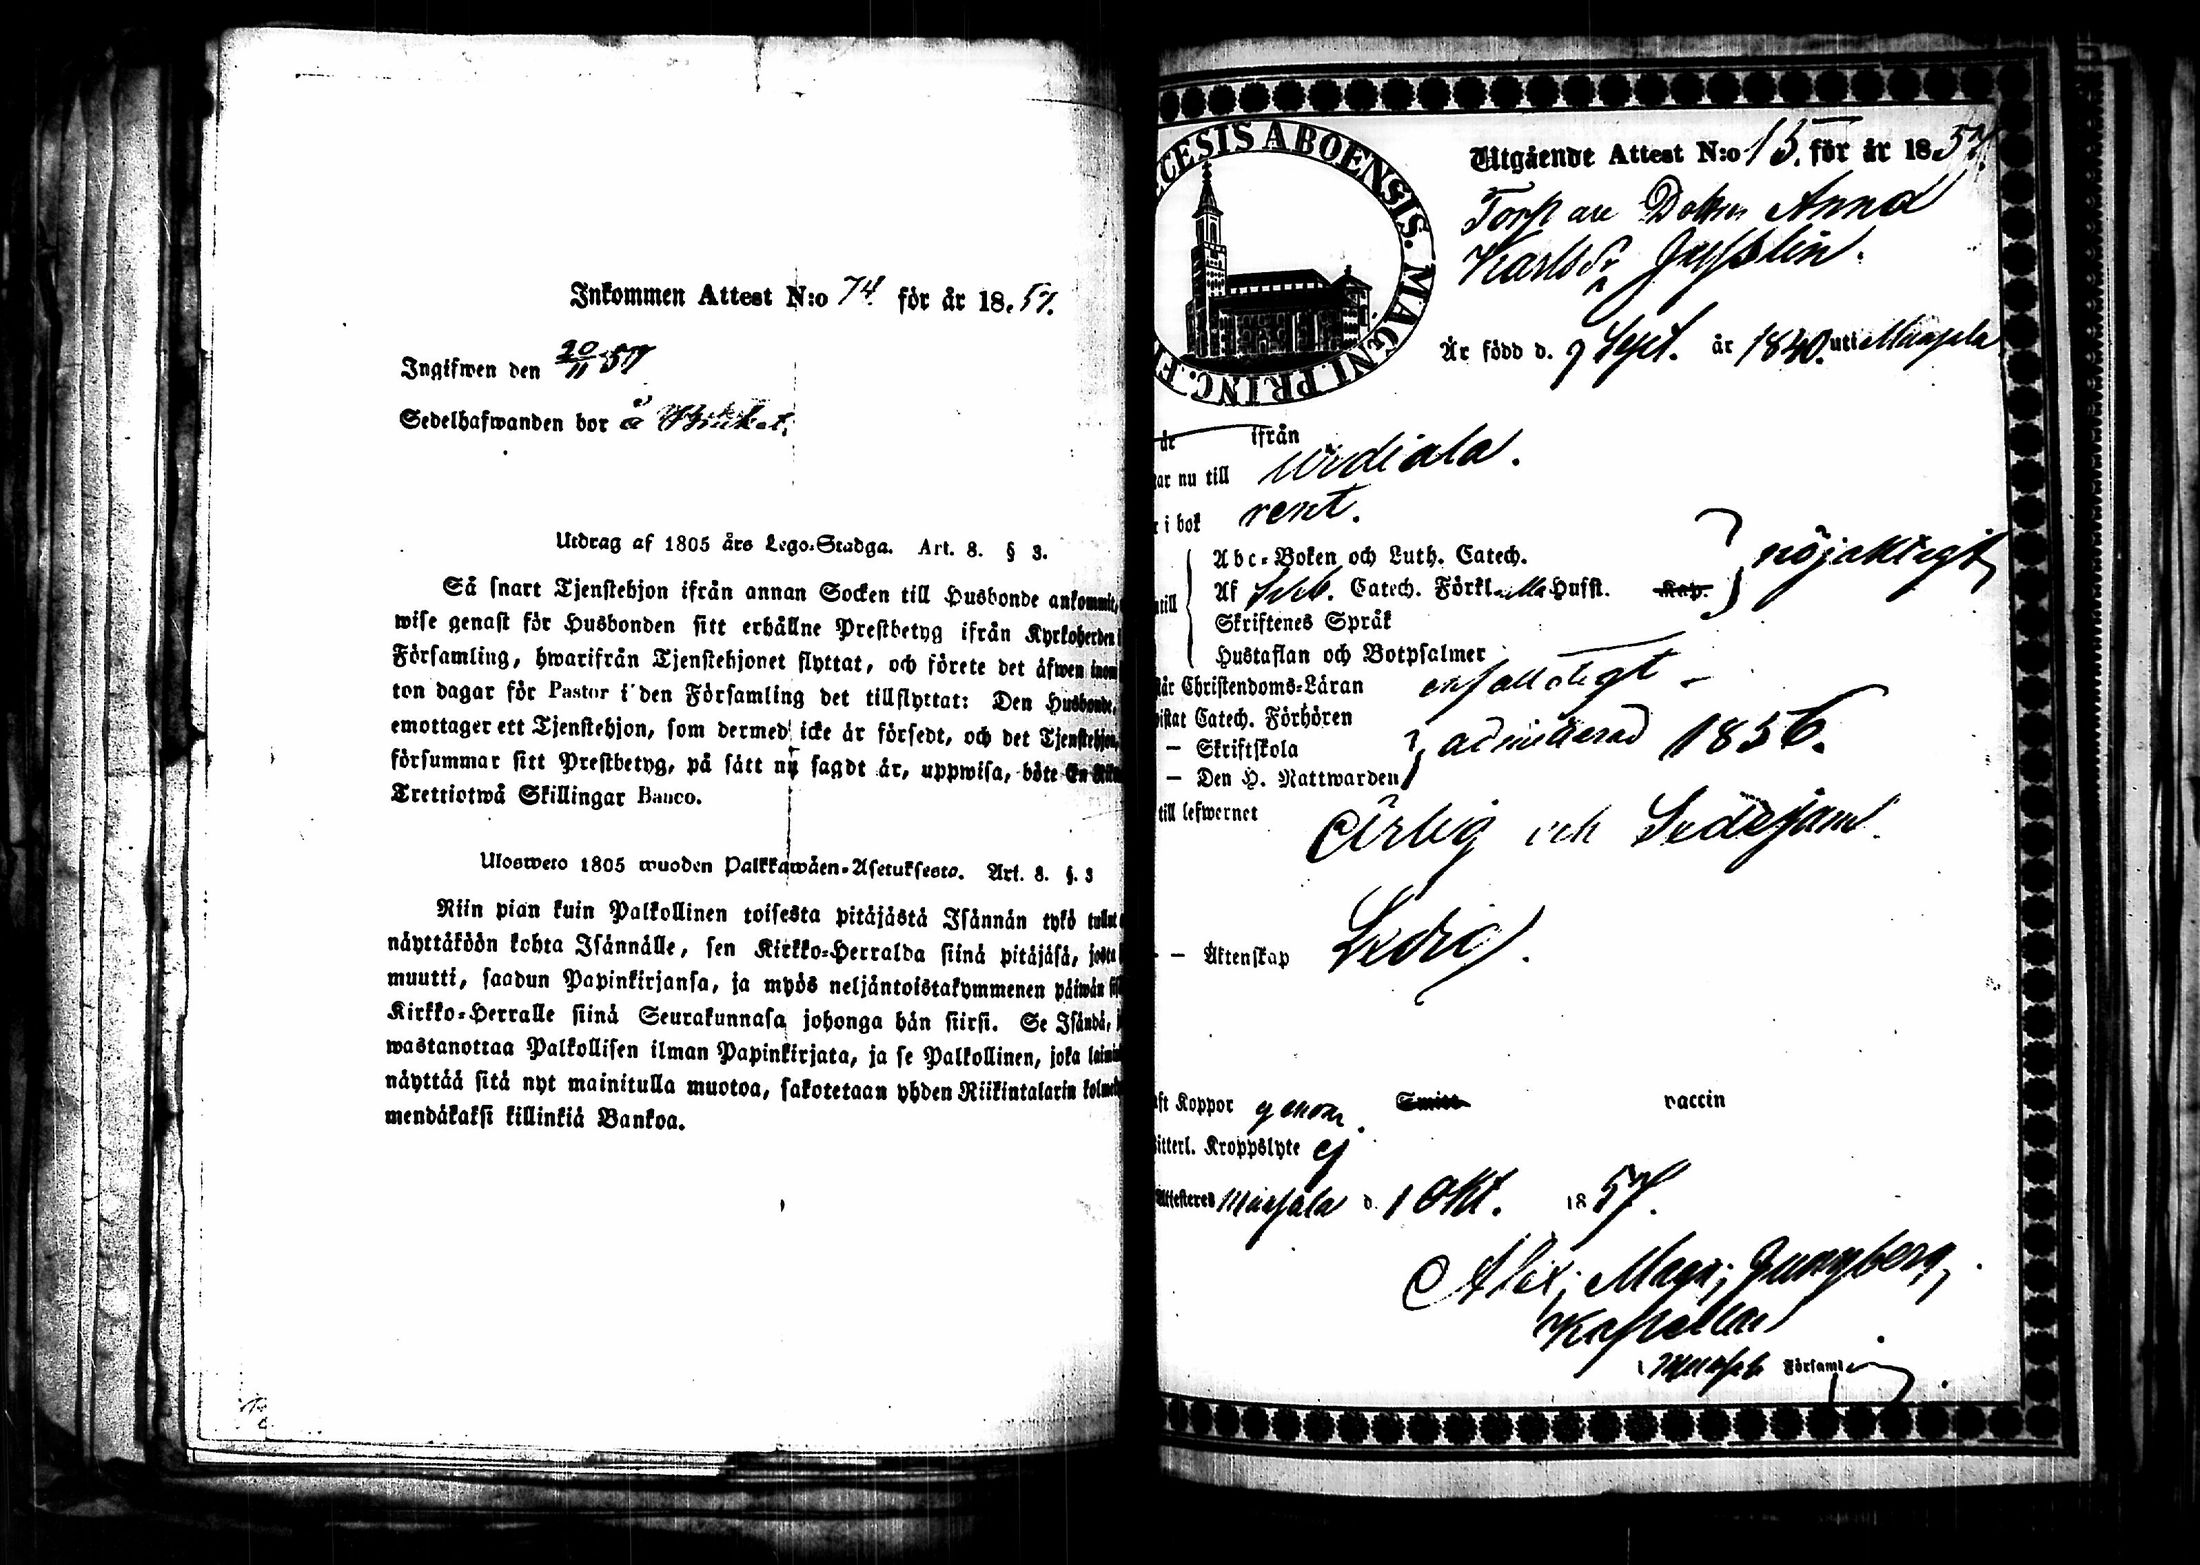 Inkommen Attest N:o 74. för år 18.57.
Ingifwen den 20/11 57
Sedelhafwanden bor å Bruket.
Utdrag af 1805 års Lego-Stadga. Art. 8. § 3.
Så snart Tjenstehjon ifrån annan Socken till Husbonde ankommit,
wise genast för Husbonden sitt erhållne Prestbetyg ifrån Kyrkoherden i
Församling, hwarifrån Tjenstehjonet flyttat, och förete det äfwen inom
ton dagar för Pastor i den Församling det tillflyttat: Den Husbonde,
emottager ett Tjenstehjon, som dermed icke är försedt, och det Tjenstehjon,
försummar sitt Prestbetyg, på sätt nu sagdt är, uppwisa, böte En
Trettiotwå Skillingar Banco.
Ulosweto 1805 wuoden Palkkawäen-Asetuksesta. Art. 8. §. 3
Niin pian kuin Palkollinen toisesta pitäjästä Isännän tykö tullut
näyttäköön kohta Isännälle, sen Kirkko-Herralda siinä pitäjäsä, josta
muutti, saadun Papinkirjansa, ja myös neljäntoistakymmenen päiwän
Kirkko-Herralle siinä Seurakunnasa johonga hän siirsi. Se Isändä,
wastanottaa Palkollisen ilman Papinkirjata, ja se Palkollinen, joka
näyttää sitä nyt mainitulla muotoa, sakotetaan yhden Riikintalarin
mendäkaksi killinkiä Bankoa.
CESIS ABOENSIS. MAGNI PRINC. F
Utgående Attest N:o 15. för år 1857.
Anna
Karls Dr
Är född d. 9 Sept. år 1840. uti
de ifrån
ar nu till Urdiala.
i bok rent.
Abc-Boken och Luth. Catech.
Af Catech. Förkl Hufst. Kap. nöjaktigt
till
Skriftenes Språk
Hustaflan och Botpsalmer
tår Christendoms-Läran enfalldigt
istat Catech. Förhören
— Skriftskola admitterad 1856.
— Den H. Nattwarden
till lefwernet Ärlig och Sedesam.
— — Äktenskap Ledig.
ft Koppor genom Smitt vaccin
itterl. Kroppslyte ej
Attesteras d. 1 Okt. 1857.
Alex. Magn. Ljungberg,
Kapellan
i Församl